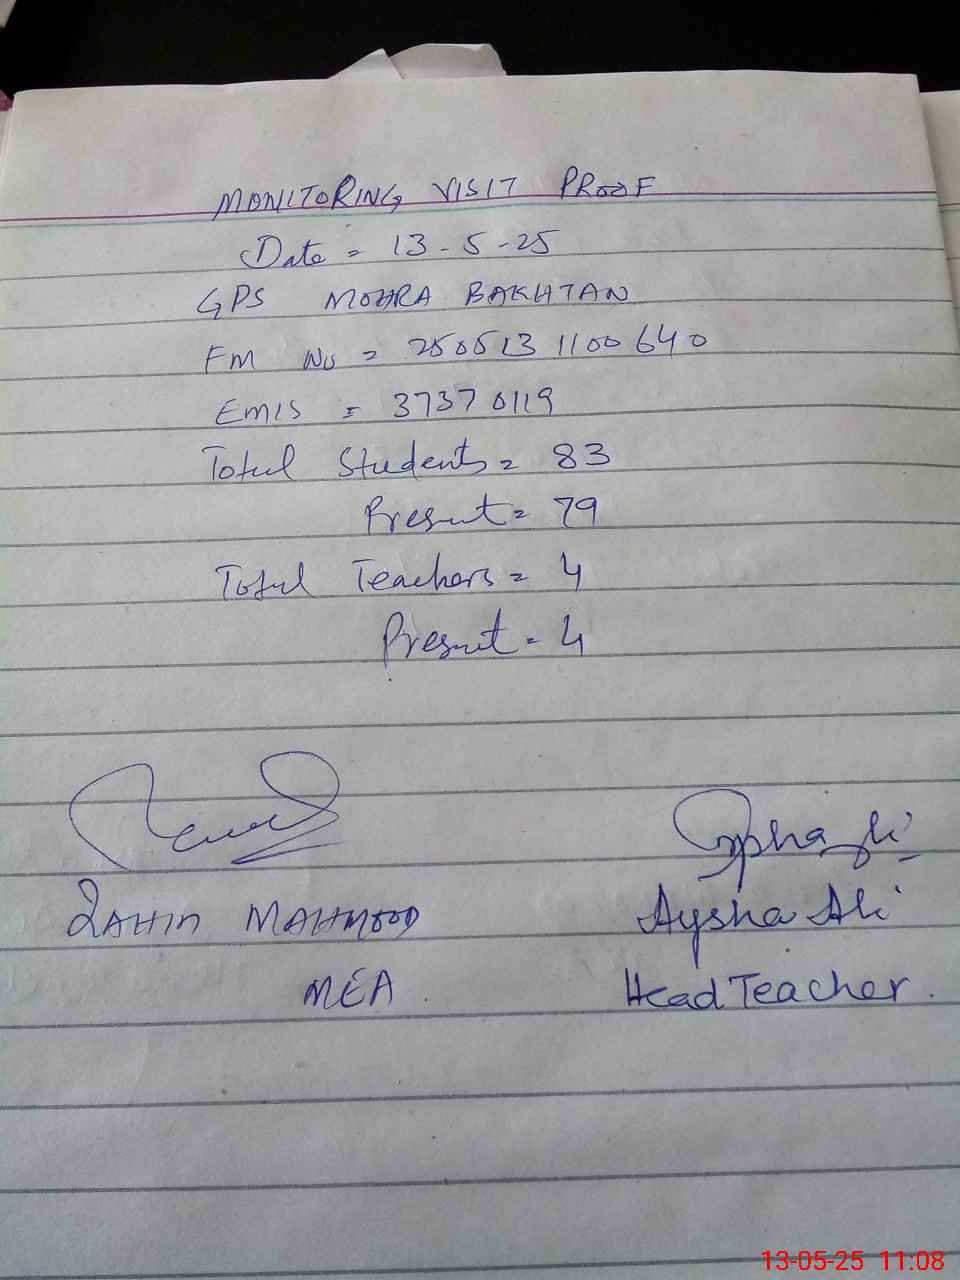 MONITORING VISIT PROOF
Date = 13-5-25
GPS MOHRA BAKHTAN
FM No = 2505131100640
EMIS = 37370119
Total Students = 83
Present = 79
Total Teachers = 4
Present = 4
Aysha Ali
MAHMOOD
Aysha Ali
MEA
Head Teacher.
13-05-25 11:08